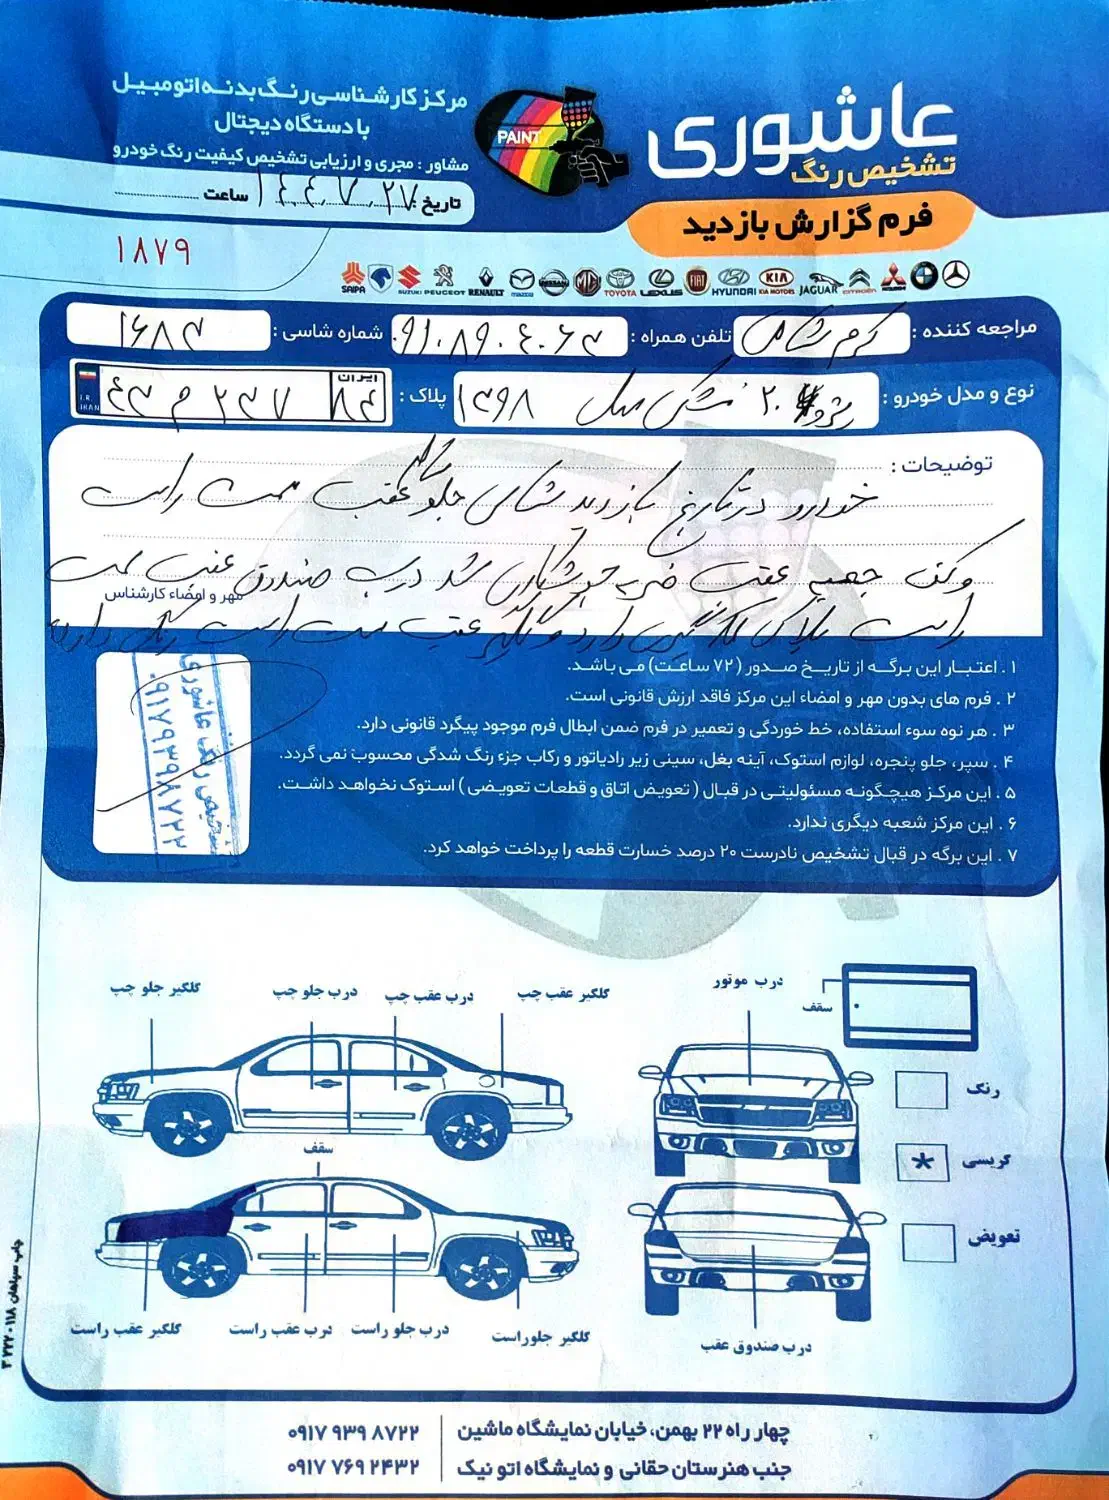 مرکز کارشناسی رنگ بدنه اتومبیل
با دستگاه دیجتال
مشاور : مجری و ارزیابی تشخیص کیفیت رنگ خودرو
تاریخ : ۱۴۰۴,۷,۲۷ ساعت
PAINT
عاشوری
تشخیص رنگ
فرم گزارش بازدید
۱۸۷۹
SAIPA SUZUKI PEUGEOT RENAULT mazda NISSAN MG TOYOTA LEXUS FIAT HYUNDAI KIA KIA MOTORS JAGUAR CITROËN
مراجعه کننده :
تلفن همراه : ۰۹۱۰۸۹۰۴۰۶۳
شماره شاسی : ۱۶۸۳
نوع و مدل خودرو : پژو ۲۰۷ مشکی مدل ۱۳۹۸
پلاک : ۴۳ م ۲۳۷ ایران ۸۳
I.R. IRAN
توضیحات :
خودرو در تاریخ بازدید شاسی جلو سالم عقب سمت راست
و کف جعبه عقب ضربه جوشکاری شد درب صندوق عقب سمت
راست پلاکی دارد و گلگیر عقب سمت راست رنگ دارد
مهر و امضاء کارشناس
تشخیص رنگ عاشوری
۰۹۱۷۹۳۹۸۷۲۲
۱ . اعتبار این برگه از تاریخ صدور (۷۲ ساعت) می باشد.
۲ . فرم های بدون مهر و امضاء این مرکز فاقد ارزش قانونی است.
۳ . هر نوه سوء استفاده، خط خوردگی و تعمیر در فرم ضمن ابطال فرم موجود پیگرد قانونی دارد.
۴ . سپر، جلو پنجره، لوازم استوک، آینه بغل، سینی زیر رادیاتور و رکاب جزء رنگ شدگی محسوب نمی گردد.
۵ . این مرکز هیچگونه مسئولیتی در قبال ( تعویض اتاق و قطعات تعویضی ) استوک نخواهد داشت.
۶ . این مرکز شعبه دیگری ندارد.
۷ . این برگه در قبال تشخیص نادرست ۲۰ درصد خسارت قطعه را پرداخت خواهد کرد.
درب موتور
سقف
گلگیر عقب چپ
درب عقب چپ
درب جلو چپ
گلگیر جلو چپ
رنگ
گریسی *
تعویض
سقف
گلگیر جلوراست
درب جلو راست
درب عقب راست
گلگیر عقب راست
درب صندوق عقب
چاپ سپاهان ۱۱۸ ۳۲۲۲۰
چهار راه ۲۲ بهمن، خیابان نمایشگاه ماشین
جنب هنرستان حقانی و نمایشگاه اتو نیک
۰۹۱۷ ۹۳۹ ۸۷۲۲
۰۹۱۷ ۷۶۹ ۲۴۳۲